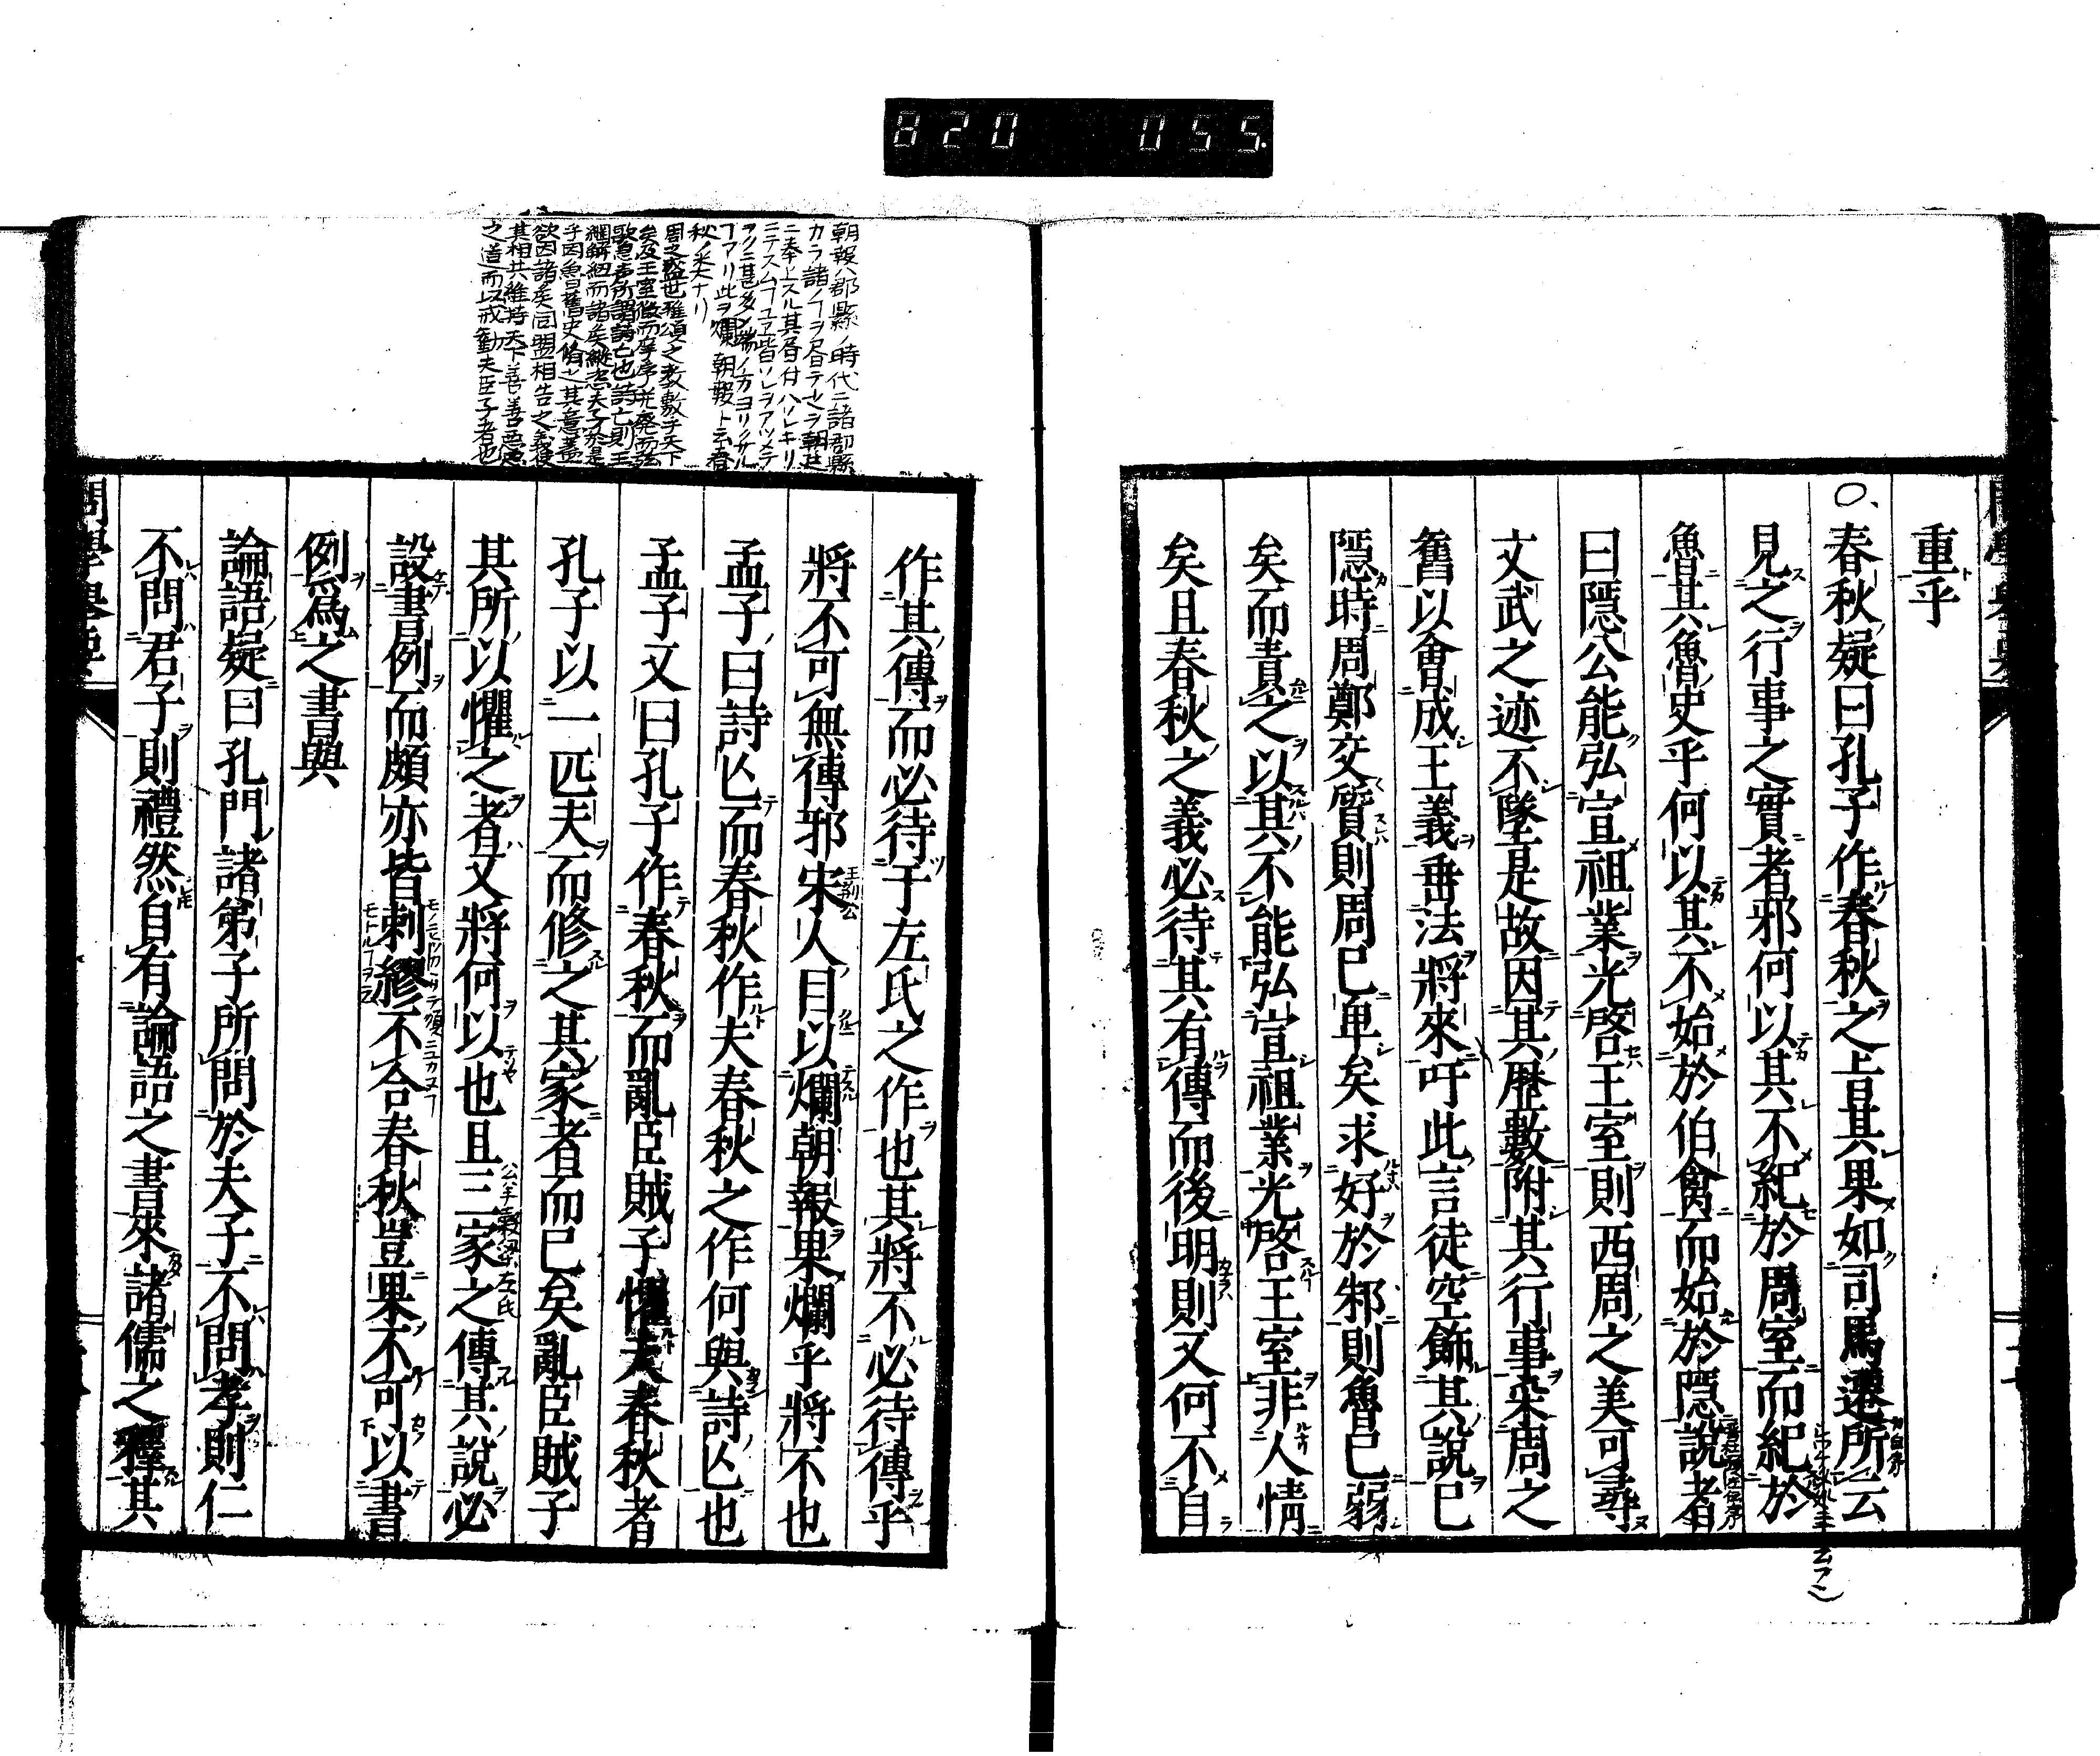 820 055.
重乎
○春秋疑曰孔子作春秋之旨其果如司馬遷所云
見之行事之實者邪何以其不紀於周室而紀於
魯其魯史乎何以其不始於伯禽而始於隱說者
曰隱公能弘宣祖業光啓王室則西周之美可尋
文武之迹不墜是故因其歷數附其行事采周之
舊以會成王義垂法將來吁此言徒空飾其說已
隱時周鄭交質則周已卑矣求好於邾則魯已弱
矣而責之以其不能弘宣祖業光啓王室非人情
矣且春秋之義必待其有傳而後明則又何不自
作其傳而必待于左氏之作也其將不必待傳乎
將不可無傳邪宋人目以爛朝報果爛乎將不也
孟子曰詩亡而春秋作夫春秋之作何與詩亡也
孟子又曰孔子作春秋而亂臣賊子懼夫春秋者
孔子以一匹夫而修之其家者而已矣亂臣賊子
其所以懼之者又將何以也且三家之傳其說必
設書例而頗亦皆刺繆不合春秋豈果不可以書
例爲之書與
論語疑曰孔門諸弟子所問於夫子不問孝則仁
不問君子則禮然自有論語之書來諸儒之釋其
問學舉要
朝報ハ郡縣ノ時代ニ諸郡縣
カラ諸ノヿヲ書テ之ヲ朝廷
ニ奉上スル其書付ハ
秋ノ釆大ナリ
周之盛世雅頌之教敷于天下
矣及王室微而庠序
歌息声所謂詩亡也詩亡則王
綱解紐而諸矣縱恣夫子於是
乎因魯舊史脩之其意蓋
欲因諸矣同盟相告之義使
其相共維持天下善善惡惡
之道而以戒勸夫臣子者也
公羊穀梁左氏